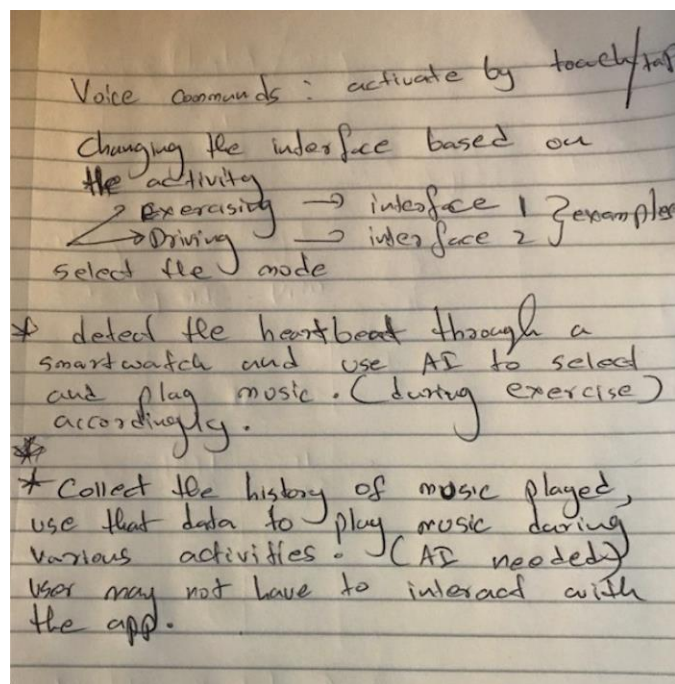 Voice commands : activate by touch/tap
Changing the interface based on
the activity
Exercising → interface 1 } examples
Driving → interface 2
select the mode
* detect the heartbeat through a
smartwatch and use AI to select
and play music. (during exercise)
accordingly.
*
* Collect the history of music played,
use that data to play music during
various activities. (AI needed)
user may not have to interact with
the app.